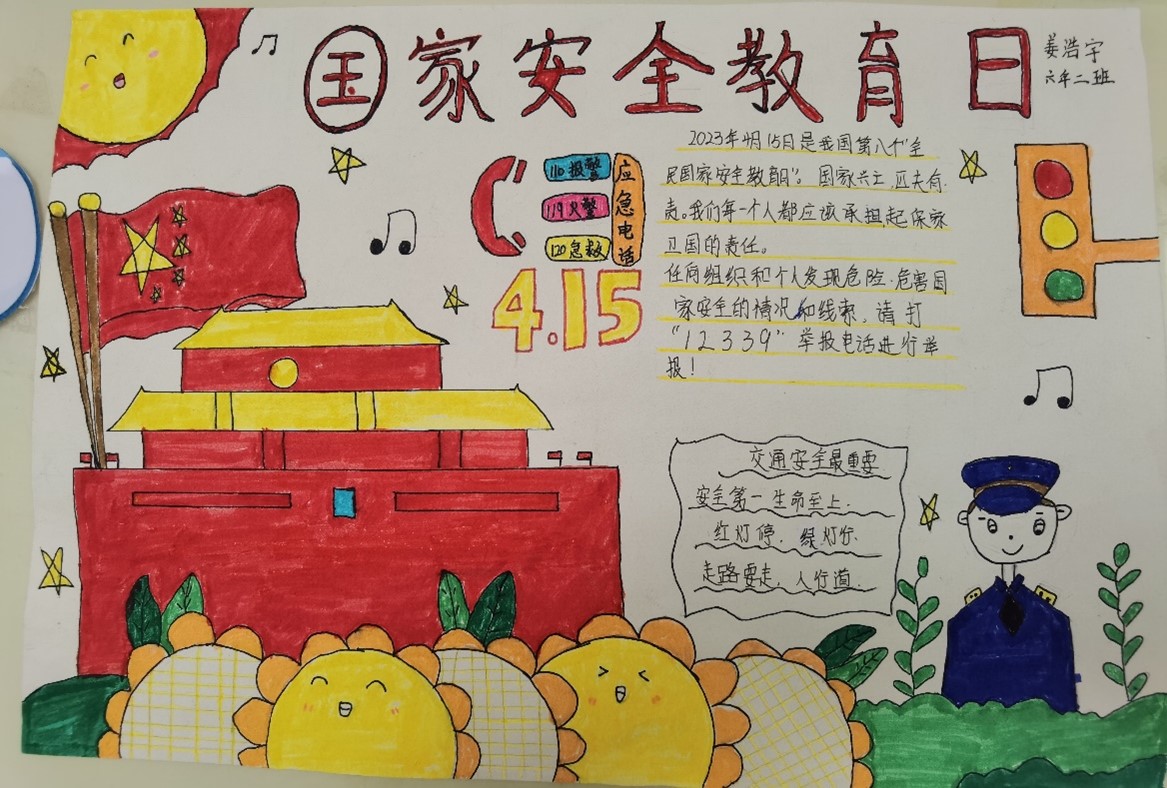 国家安全教育日
姜浩宇
六年二班
110报警
119火警
120急救
应急电话
4.15
2023年4月15日是我国第八个"全
民国家安全教育日"。国家兴亡,匹夫有
责。我们每一个人都应该承担起保家
卫国的责任。
任何组织和个人发现危险.危害国
家安全的情况和线索,请打
"12339"举报电话进行举
报!
交通安全最重要
安全第一生命至上.
红灯停.绿灯行.
走路要走,人行道.